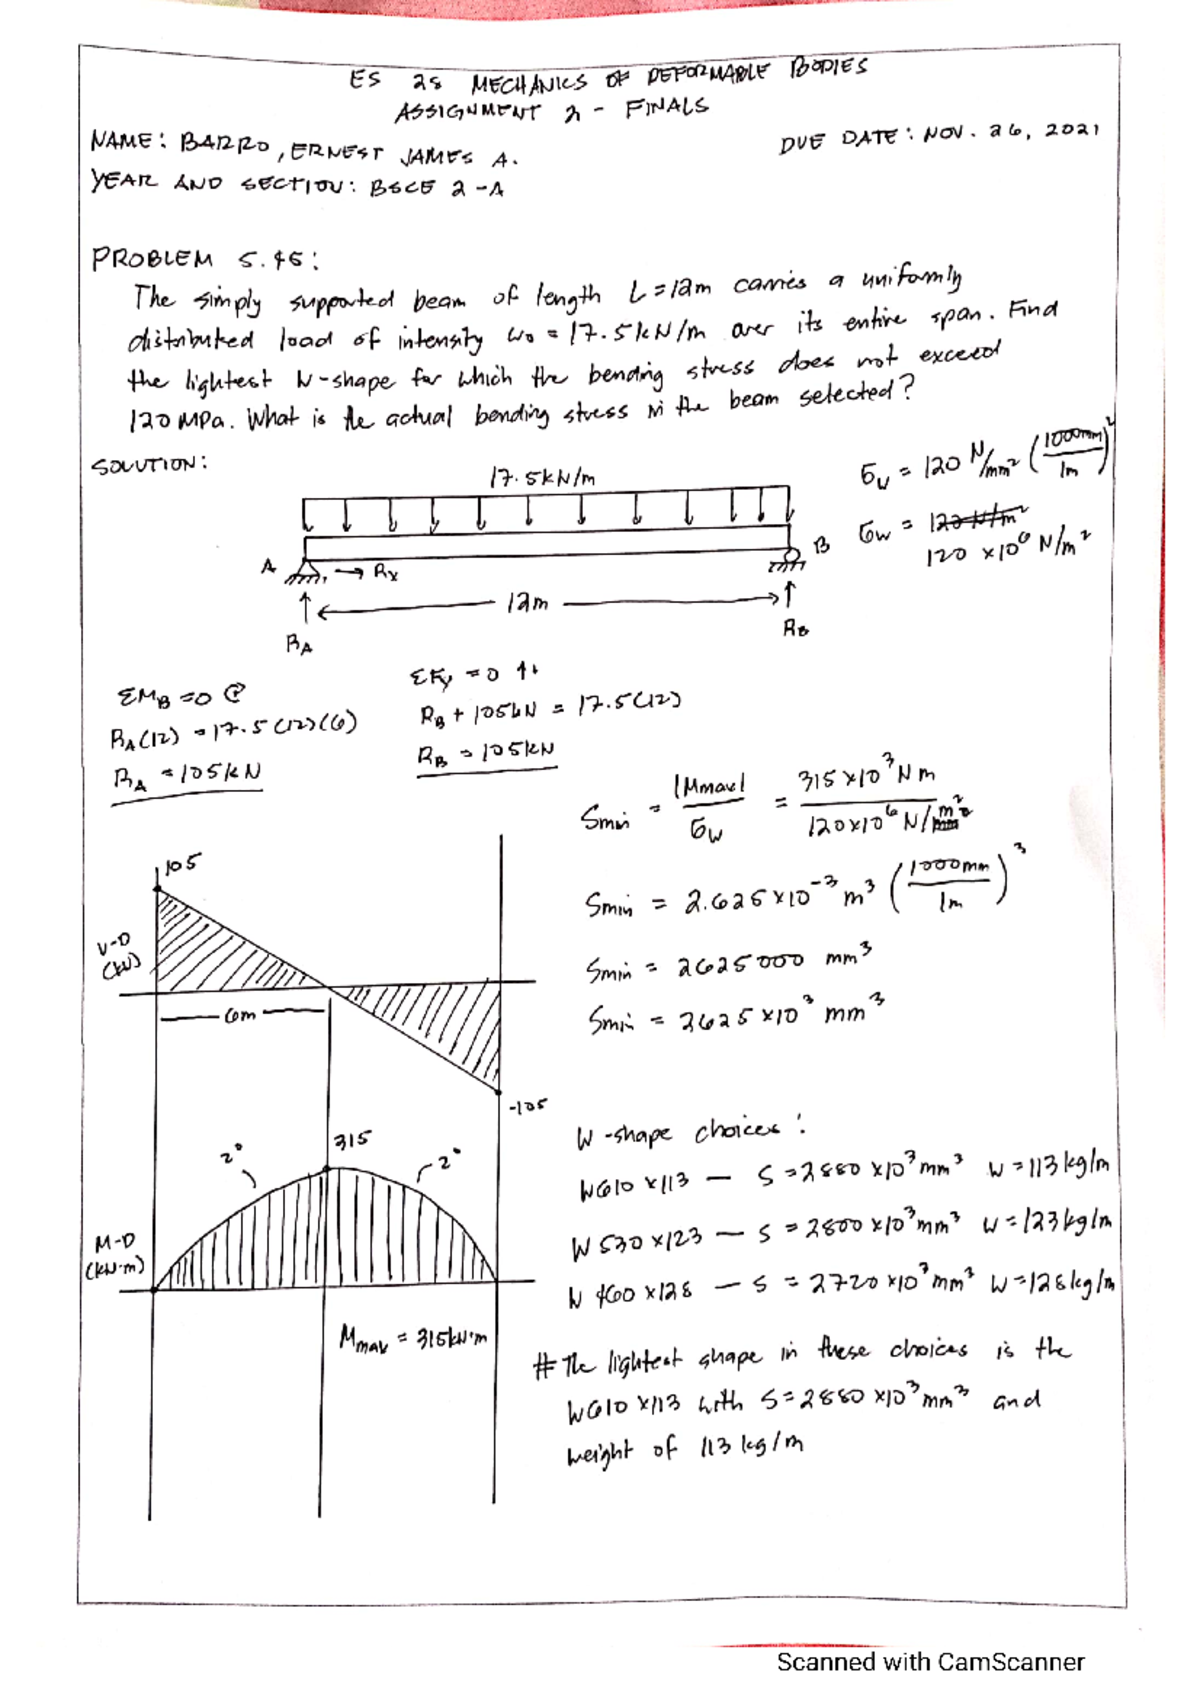 ES 28 MECHANICS OF DEFORMABLE BODIES
ASSIGNMENT 2 - FINALS
NAME: BARRO, ERNEST JAMES A.
DUE DATE: NOV. 26, 2021
YEAR AND SECTION: BSCE 2-A
PROBLEM 5.45:
The simply supported beam of length L=12m carries a uniformly
distributed load of intensity w₀ = 17.5kN/m over its entire span. Find
the lightest W-shape for which the bending stress does not exceed
120 MPa. What is the actual bending stress in the beam selected?
SOLUTION:
17.5kN/m
A
Rx
B
12m
RA
RB
σw = 120 N/mm² (1000mm/1m)²
σw = 120 N/m²
120 x10⁶ N/m²
ΣMB = 0
RA(12) = 17.5(12)(6)
RA = 105kN
ΣFy = 0 ↑↓
RB + 105kN = 17.5(12)
RB = 105kN
Smin = |Mmax|/σw = 315x10³ N m / 120x10⁶ N/m²
Smin = 2.625x10⁻³ m³ (1000mm/1m)³
Smin = 2625000 mm³
Smin = 2625 x10³ mm³
105
V-D
(kN)
6m
-105
2°
315
2°
M-D
(kN·m)
Mmax = 315kN·m
W-shape choices:
W610 x113 — S = 2880 x10³ mm³ W = 113 kg/m
W530 x123 — S = 2800 x10³ mm³ W = 123 kg/m
W 460 x128 — S = 2720 x10³ mm³ W = 128 kg/m
# The lightest shape in these choices is the
W610 x113 with S = 2880 x10³ mm³ and
weight of 113 kg/m
Scanned with CamScanner